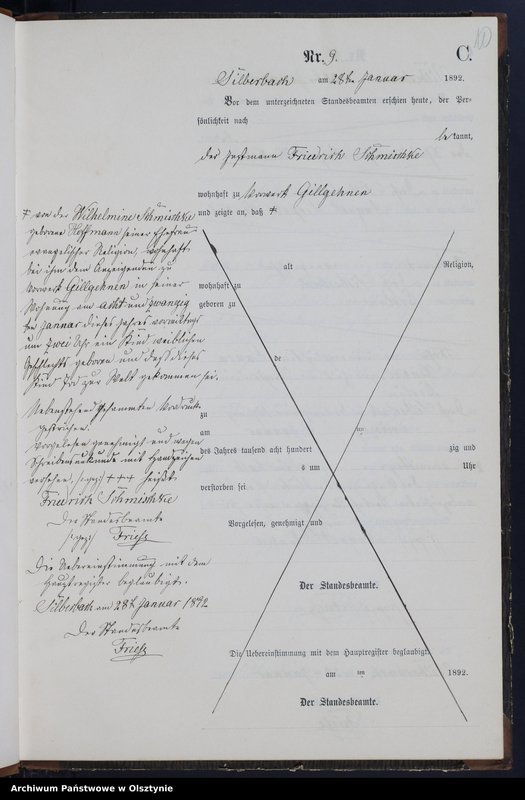 100
Nr. 9. C.
Silberbach am 28t. Januar 1892.
Vor dem unterzeichneten Standesbeamten erschien heute, der Per-
sönlichkeit nach
be kannt,
der Friedrich Schmischke
wohnhaft zu Vorwerk Gillgehnen
und zeigte an, daß +
+ von der Wilhelmine Schmischke
geborene Hoffmann seiner Ehefrau
evangelischer Religion, wohnhaft
bei ihm dem Anzeigenden zu
Vorwerk Gillgehnen in seiner
Wohnung am acht und zwanzig
ten Januar dieses Jahres vormittags
um zwei Uhr ein Kind weiblichen
Geschlechts geboren und daß dieses
Kind todt zur Welt gekommen sei.
Nebenstehend gesammten Vordruck
gestrichen.
vorgelesen genehmigt und wegen
Schreibensunkunde mit Handzeichen
versehen, (gez) +++ heißt:
Friedrich Schmischke
Der Standesbeamte
(gez) Friese
Die Uebereinstimmung mit dem
Hauptregister beglaubigt.
Silberbach am 28t. Januar 1892
Der Standesbeamte
Friese
alt Religion,
wohnhaft zu
geboren zu
de
zu
am ten
des Jahres tausend acht hundert zig und
s um Uhr
verstorben sei
Vorgelesen, genehmigt und
Der Standesbeamte.
Die Uebereinstimmung mit dem Hauptregister beglaubigt
am ten 1892.
Der Standesbeamte.
Archiwum Państwowe w Olsztynie